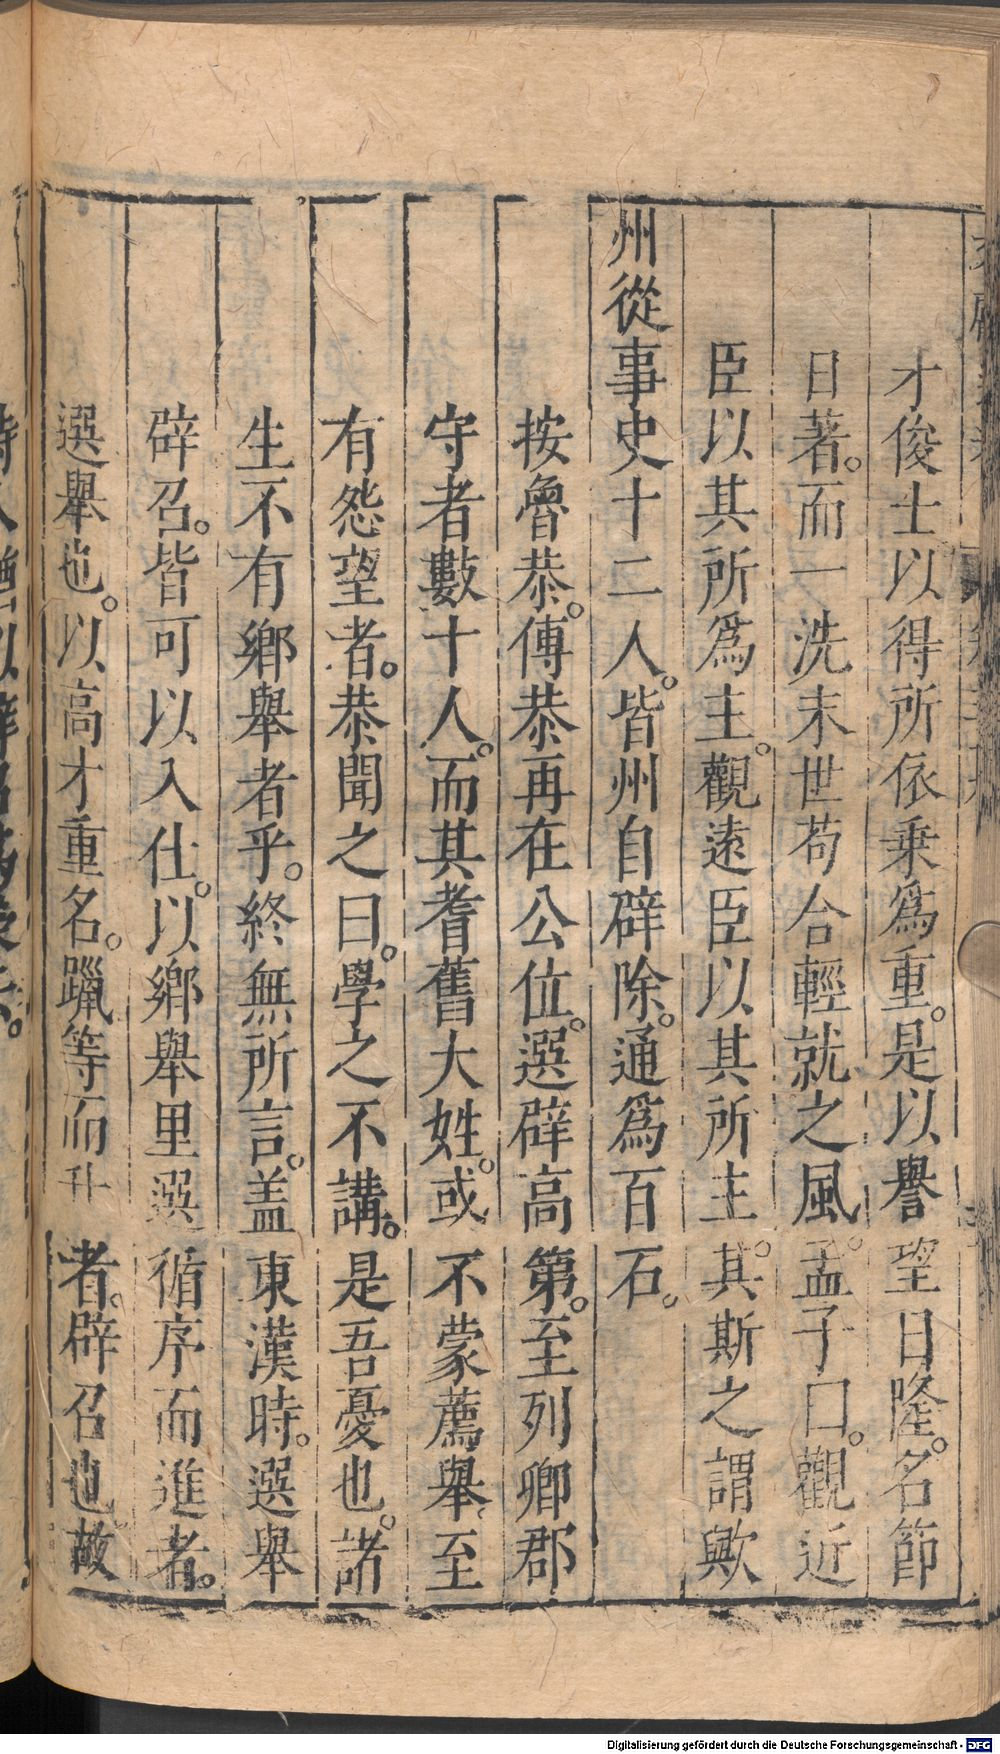 才俊士以得所依乗爲重。是以譽望日隆。名節
日著。而一洗末世茍合輕就之風。孟子曰。觀近
臣以其所爲主。觀遠臣以其所主。其斯之謂歟
州從事史十二人。皆州自辟除。通爲百石。
按魯恭。傳恭再在公位。選辟高第。至列卿郡
守者數十人。而其耆舊大姓。或不蒙薦舉至
有怨望者。恭聞之曰。學之不講。是吾憂也。諸
生不有鄉舉者乎。終無所言。盖東漢時。選舉
辟召。皆可以入仕。以鄉舉里選循序而進者。
選舉也。以高才重名。躐等而升者。辟召也。故
Digitalisierung gefördert durch die Deutsche Forschungsgemeinschaft - DFG